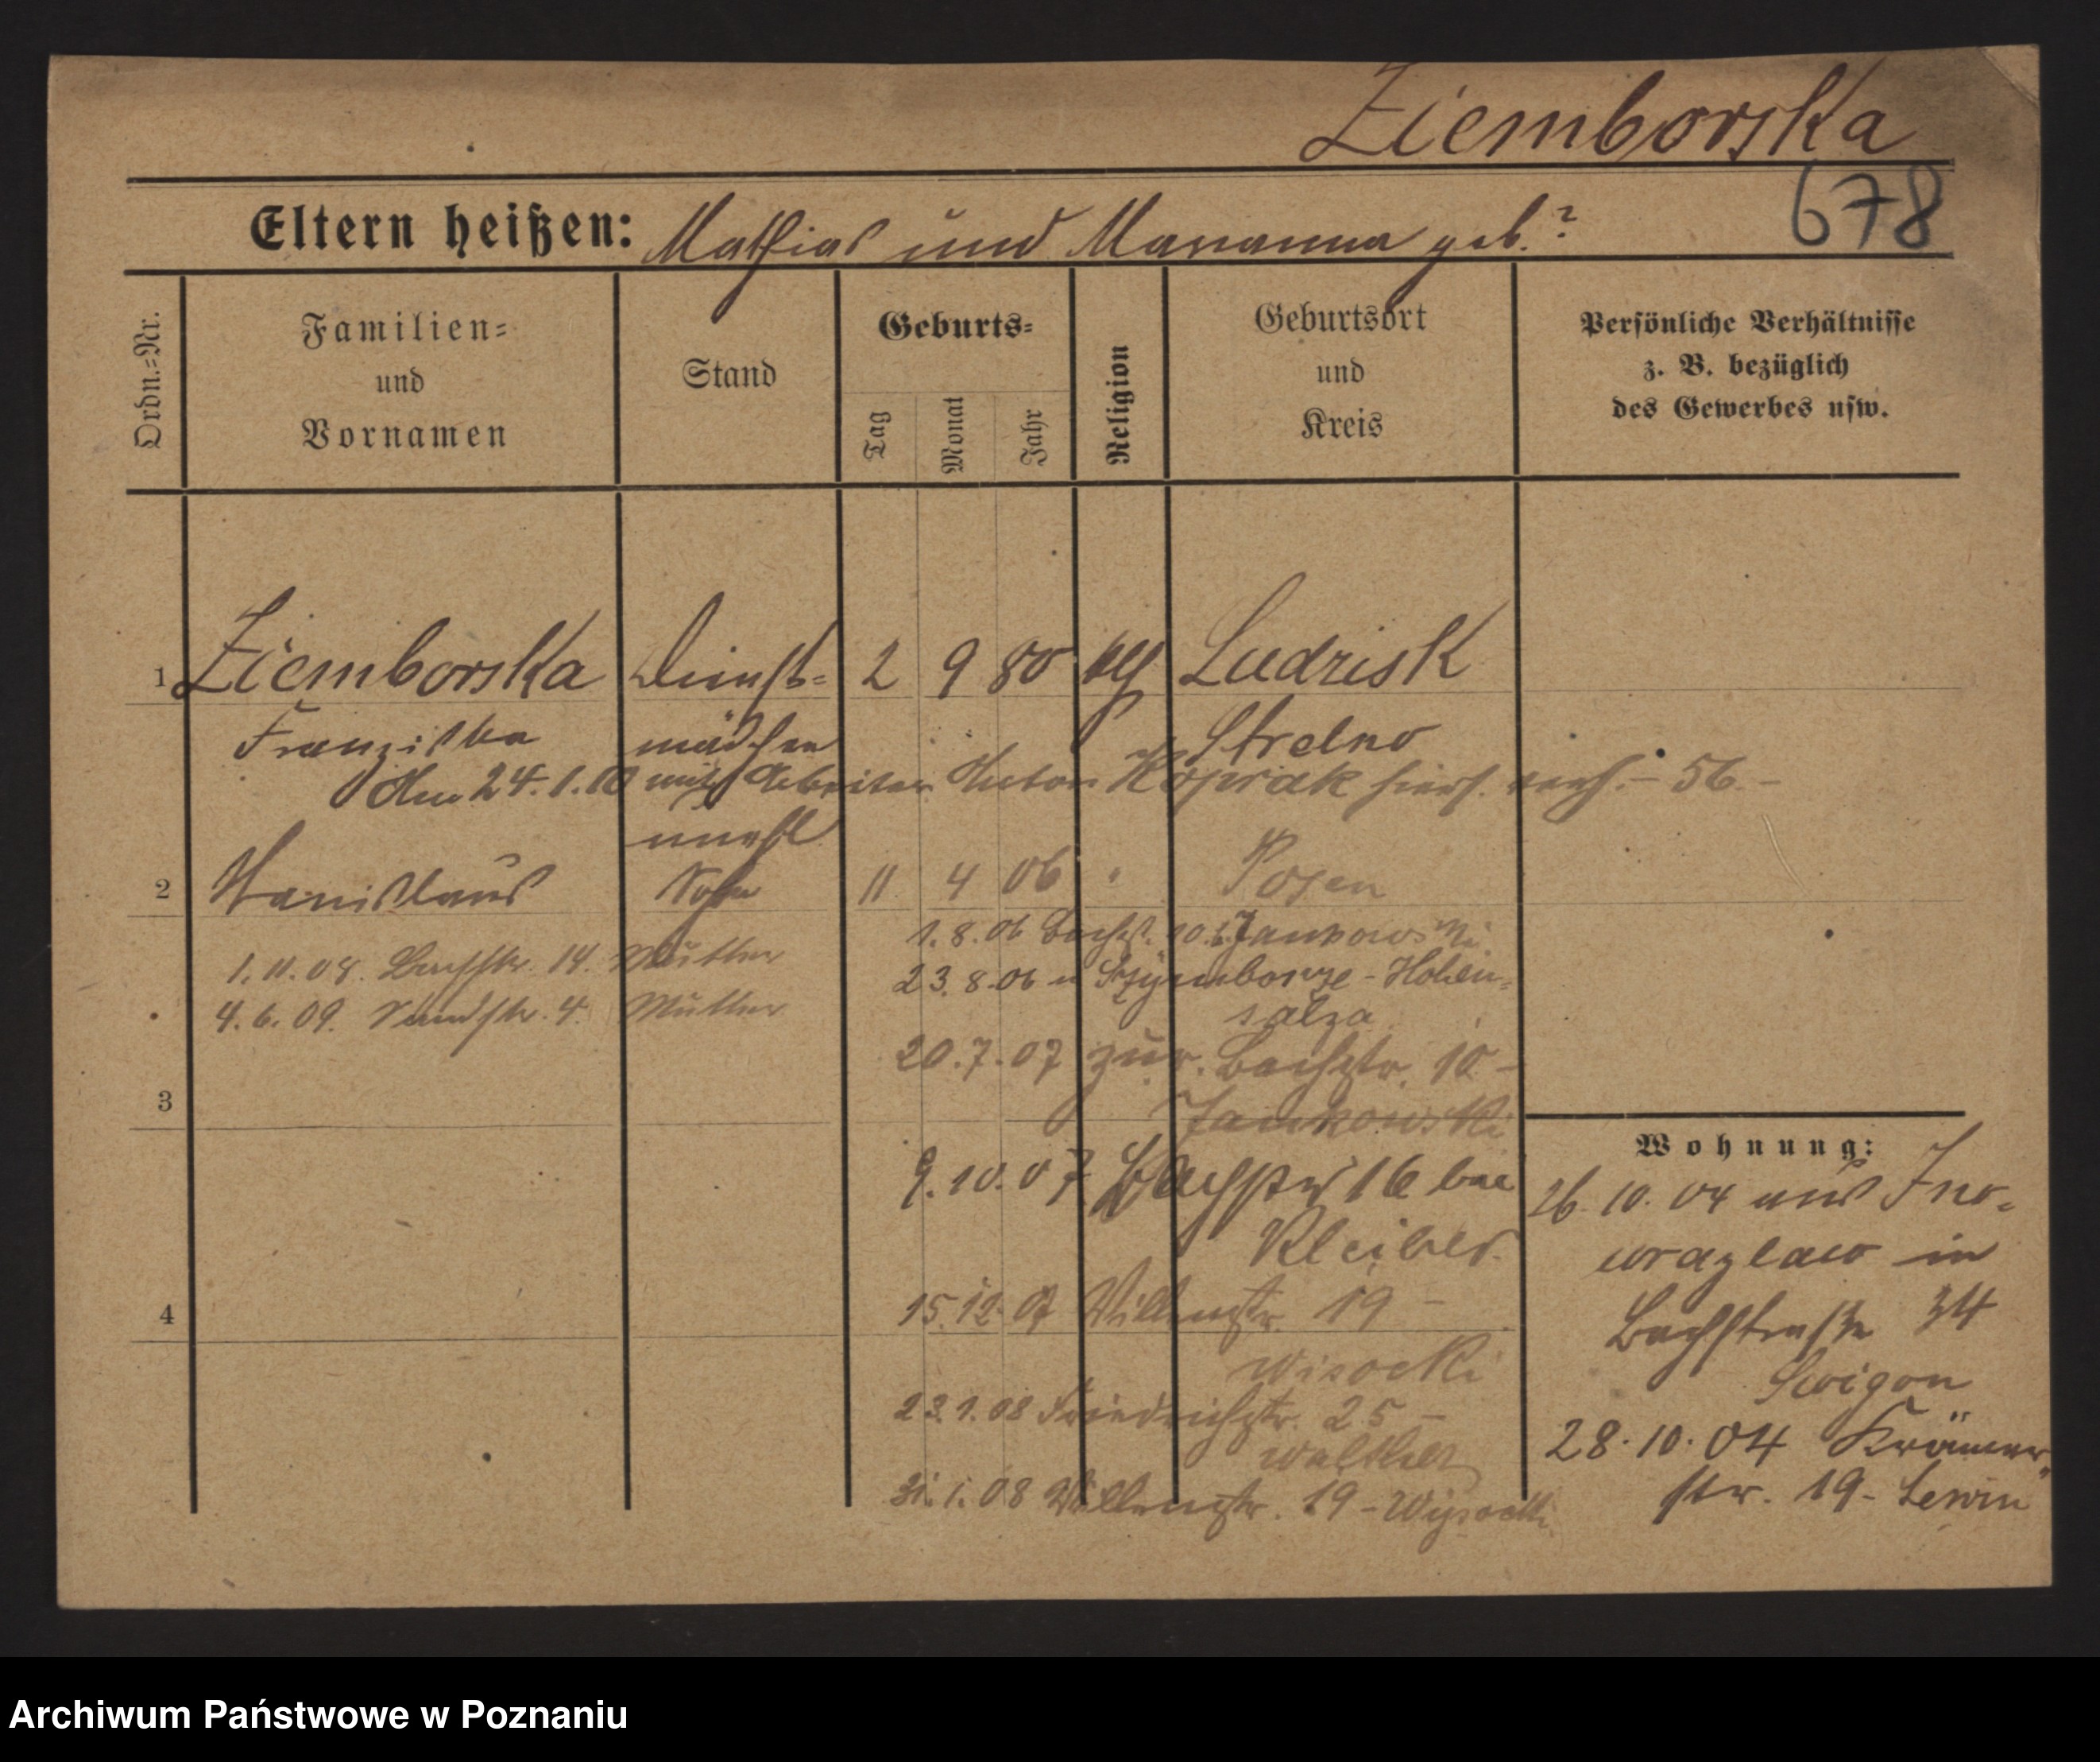 Ziemborska
678
Eltern heißen: Mathias und Marianna geb.?
Ordn.-Nr.
Familien-
und
Vornamen
Stand
Geburts-
Tag
Monat
Jahr
Religion
Geburtsort
und
Kreis
Persönliche Verhältnisse
z. B. bezüglich
des Gewerbes usw.
1 Ziemborska Dienst- 2 9 80 kg Ludzisk
Franziska mädchen Strelno
Am 24.1.10 mit Arbeiter Anton hiers. verh. - 56. -
unehl
2 Stanislaus Sohn 11 4 06 " Posen
1.8.06 Bachst. 10 b. Jankowski
1.11.08. Bachstr. 14. Mutter
23.8.06 n Szymborze - Hohen-
salza
4.6.09. Sandstr. 4. Mutter
20.7.07 zur. Bachstr. 10 -
Jankowski
3
9.10.07 Bachstr 16 bei
Kleiber
4
15.12.07 Villenstr. 19 -
Wisocki
23.1.08 Friedrichstr. 25 -
Walther
31.1.08 Villenstr. 19 - Wysocki
Wohnung:
26.10.04 aus Ino-
wrazlaw in
Bachstraße 34
Swigon
28.10.04 Krämer-
str. 19 - Lewin
Archiwum Państwowe w Poznaniu